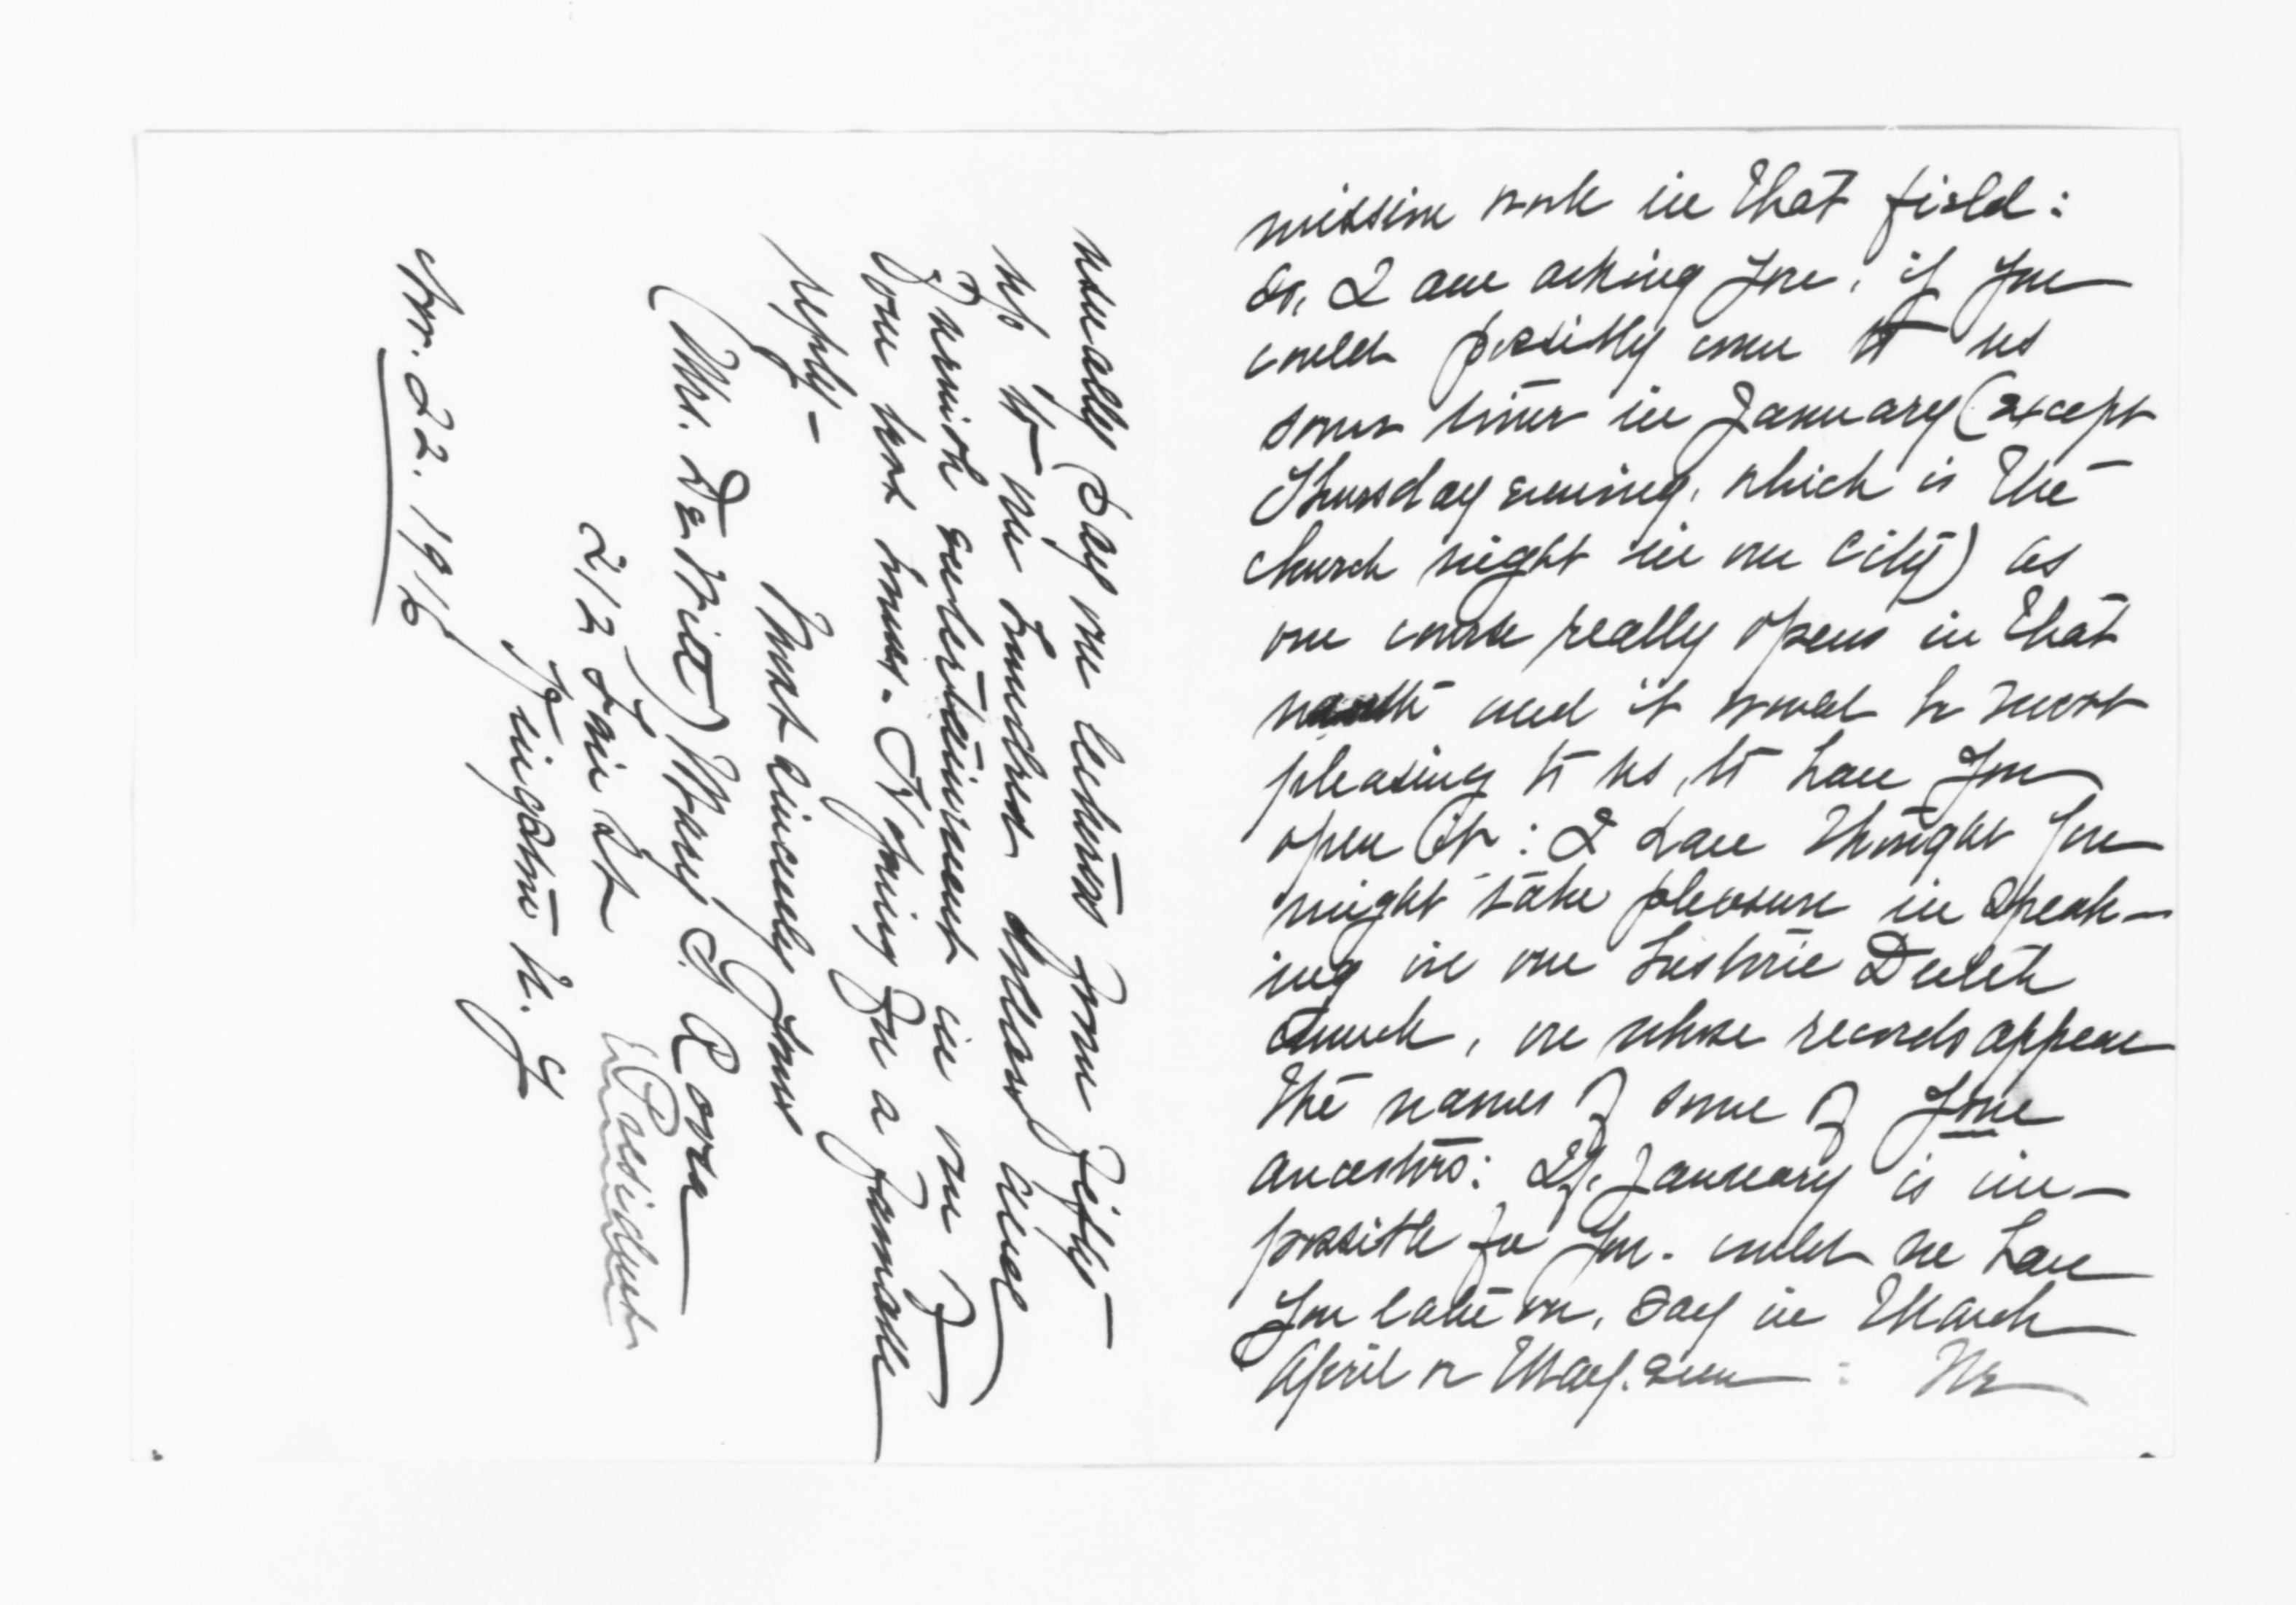 mission work in that field:
So, I am asking you, if you
could possibly come to us
some time in January (except
Thursday evening, which is the
church night in our city) as
our course really opens in that
month and it would be most
pleasing to us, to have you
open it: I have thought you
might take pleasure in speak-
ing in our historic Dutch
church, on whose records appear
the names of some of your
ancestors: If, January is im-
possible for you. could we have
you later on, say in March
April or May. even : We
usually pay our lecturers from fifty-
up to one hundred dollars and
furnish entertainment in one of
our best homes. Hoping for a favorable
reply-
Most sincerely yours
(Mrs. De Witt) Mary I. Roosa
President
212 Fair St
Kingston N. Y
Nov. 22. 1916